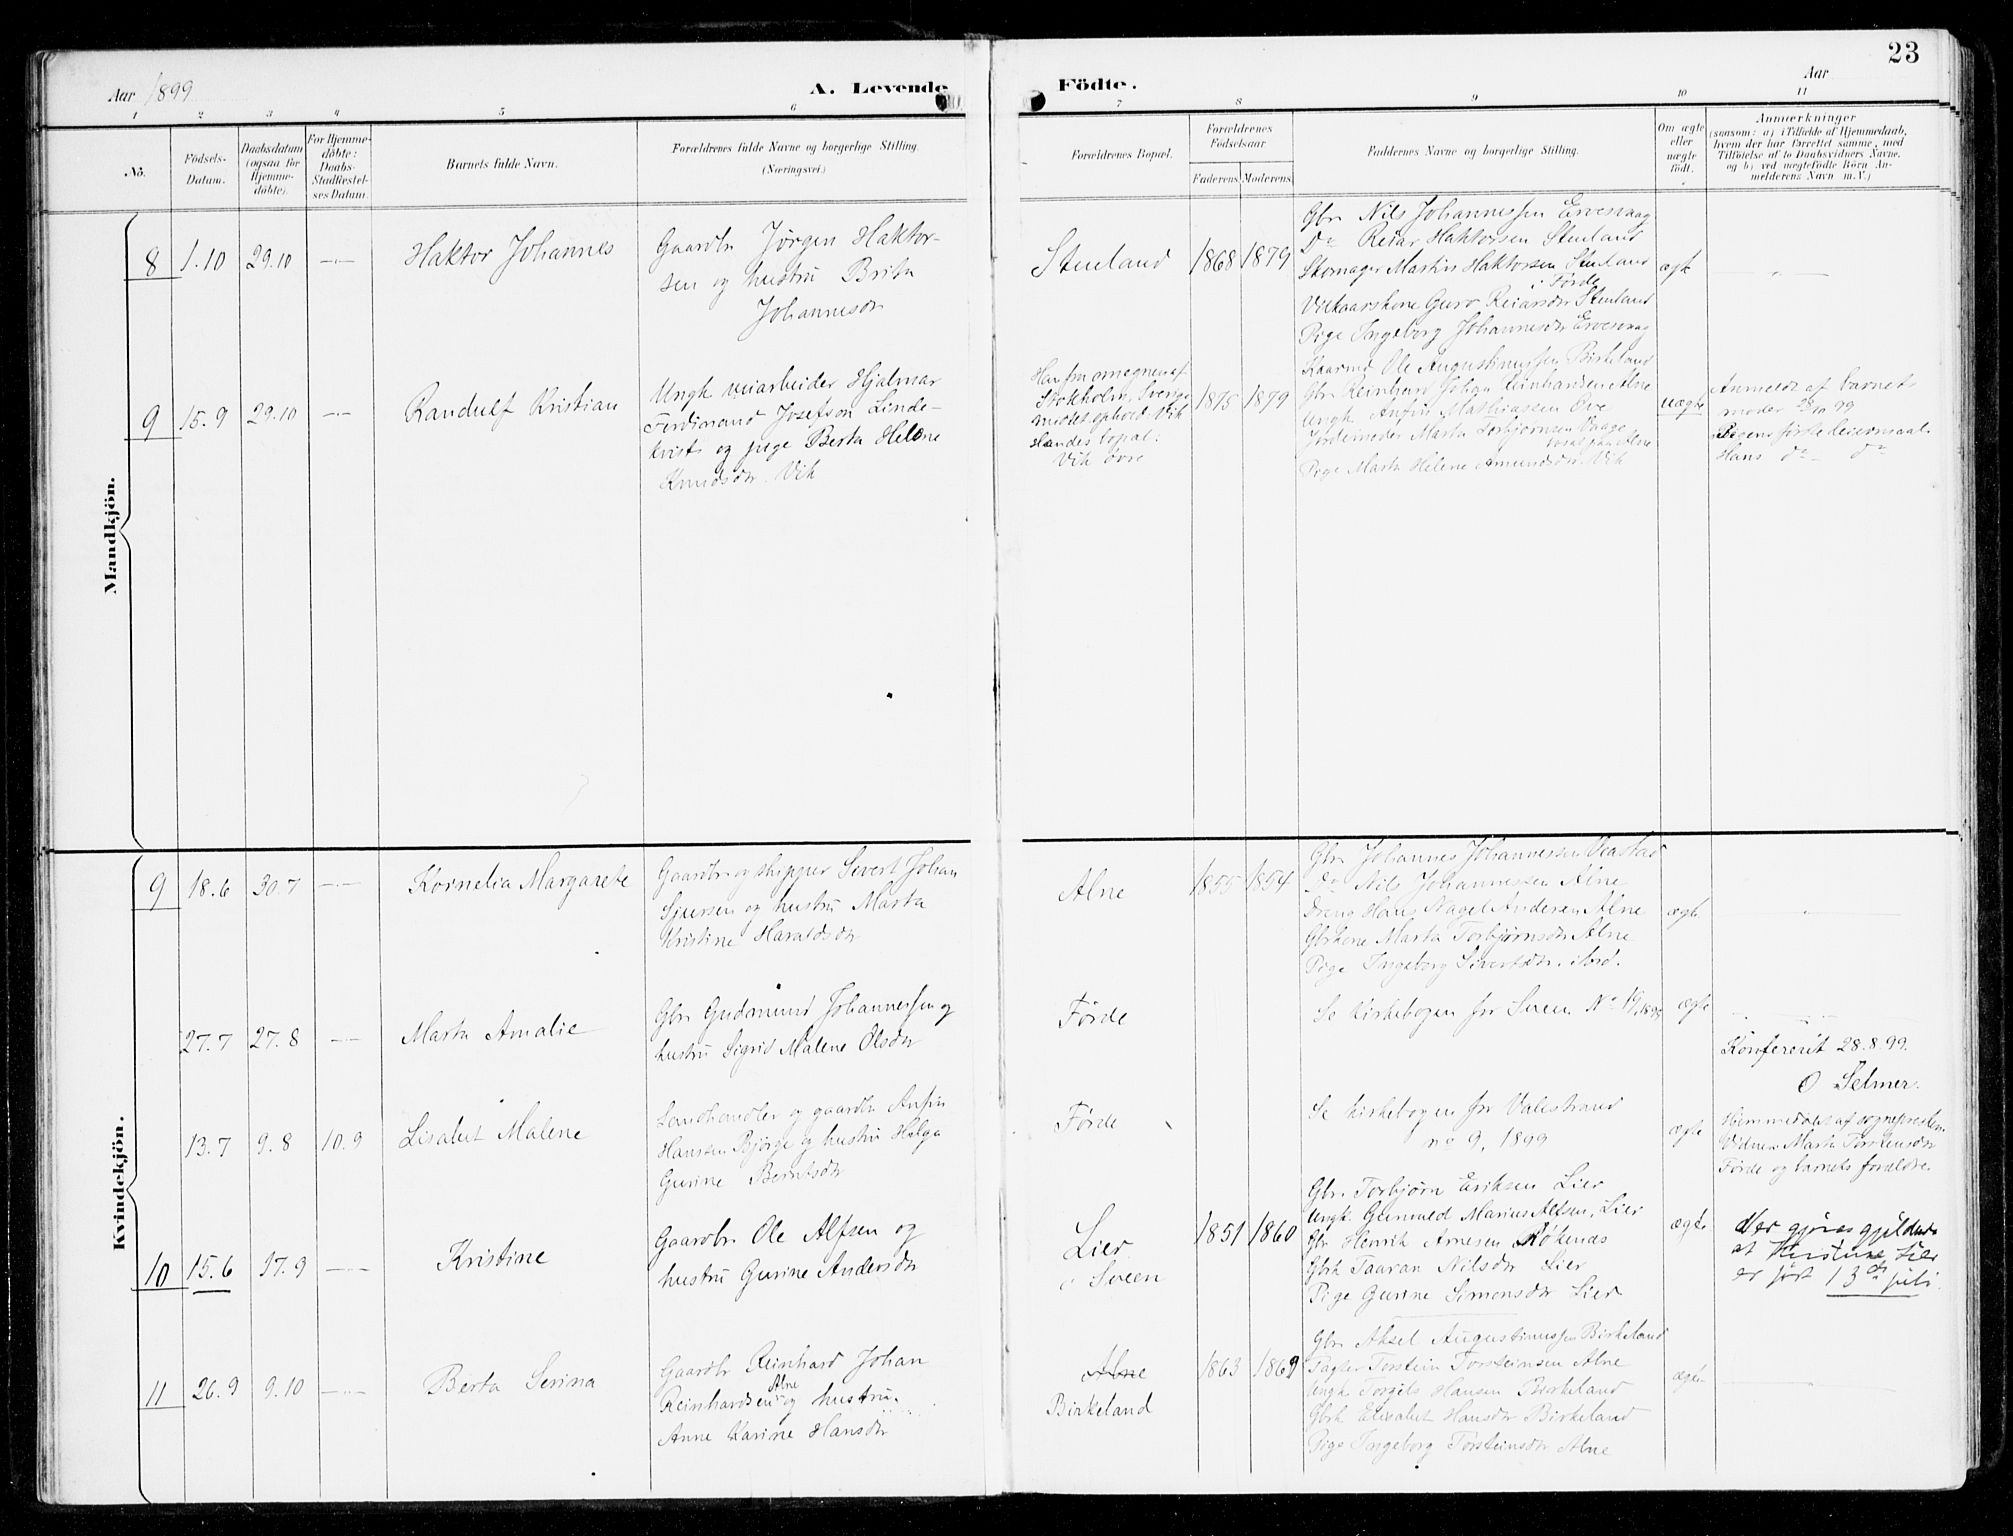 23
Aar 1899
A. Levende
Födte.
Aar
1 2 3 4 5 6 7 8 9 10 11
Nö.
Födsels-
Datum.
Daabsdatum
(ogsaa for
Hjemme-
döbte).
For Hjemme-
döbte:
Daabs-
Stadfæstel-
ses Datum.
Barnets fulde Navn.
Forældrenes fulde Navne og borgerlige Stilling.
(Næringsvei.)
Forældrenes Bopæl.
Forældrenes
Födselsaar
Faderens. Moderens.
Faddernes Navne og borgerlige Stilling.
Om ægte
eller
uægte
födt.
Anmærkninger
(saasom: a) i Tilfælde af Hjemmedaab,
hvem der har forrettet samme, med
Tilföielse af to Daabsvidners Navne.
og b) ved uægtefödte Börn An-
melderens Navn m. V.)
Mandkjön.
8 1.10 29.10 —"—
Haktor Johannes
Gaardbr Jørgen Haktor-
sen og hustru Brita
Johannesdr
Stenland
1868 1879
Gbr Nils Johannessen Ervesvaag
Do Reiar Haktorsen Stenland
Skomager Martin Haktorsen Stenland
i Førde
Vilkaarskone Guro Reiarsdr Stenland
Pige Ingeborg Johannesdr Ervesvaag
ægte
—"—
9 15.9 29.10 —"—
Randulf Kristian
Ungk veiarbeider Hjalmar
Ferdinand Josefson Linde-
kvist og pige Berta Helene
Knudsdr. Vik
Han fra omegnen af
Stokholm, Sverige
midl. ophold Vik
Hendes bopæl:
Vik övre
1875 1879
Kaarmd Ole Augustinussen Birkeland
Gbr Reinhard Johan Reinhardsen Alne
Ungk Anfin Mathiassen Ove
Jordemoder Marta Torbjørnsen Vaage
Pige Marta Helene Amundsdr. Vik
uægte
Anmeldt af barnets
moder 28/10 99
Pigens første leiermaal
Hans do — do
Kvindekjön.
9 18.6 30.7 —"—
Kornelia Margarete
Gaardbr og skipper Severt Johan
Sjursen og hustru Marta
Kristine Haraldsdr
Alne
1855 1854
Gbr Johannes Johannessen Vestad
Do Nils Johannessen Alne
Dreng Hans Nagel Andersen Alne
Gbrkone Marta Torbjørnsdr Alne
Pige Ingeborg Sivertsdr. ibid.
ægte
—"—
27.7 27.8 —"—
Marta Amalie
Gbr Gudmund Johannessen og
hustru Sigrid Malene Olsdr
Førde
Se kirkebogen for Sveen No 19, 1899
ægte
Konfereret 28.8.99.
O Selmer.
13.7 9.8 10.9
Lisabet Malene
Landhandler og gaardbr Anfin
Hansen Bjørge og hustru Helga
Gurine Berntsdr
Førde
Se kirkebogen for Valestrand
no 9, 1899
ægte
Hjemmedøbt af sognepresten
Vidner Marta Torsteinsdr
Førde og barnets forældre.
10 15.6 17.9 —"—
Kristine
Gaardbr Ole Alfsen og
hustru Gurine Andersdr
Lier
i Sveen
1851 1860
Gbr. Torbjørn Eriksen Lier
Ungk. Gunvald Marius Alfsen, Lier
Gbr Henrik Arnesen Røkenæs
Gbrk Taaran Nilsdr Lier
Pige Gurine Simonsdr Lier
ægte
Her gjøres gjeldende
at Kristine Lier
er født 13de juli.
11 26.9 9.10 —"—
Berta Serina
Gaardbr Reinhard Johan
Reinhardsen Alne og hustru
Anne Karine Hansdr
Alne
Birkeland
1863 1869
Gbr Aksel Augustinussen Birkeland
Pagter Torstein Torsteinsen Alne
Ungk Torgils Hansen Birkeland
Gbrk Elisabet Hansdr Birkeland
Pige Ingeborg Torsteinsdr Alne
ægte
—"—